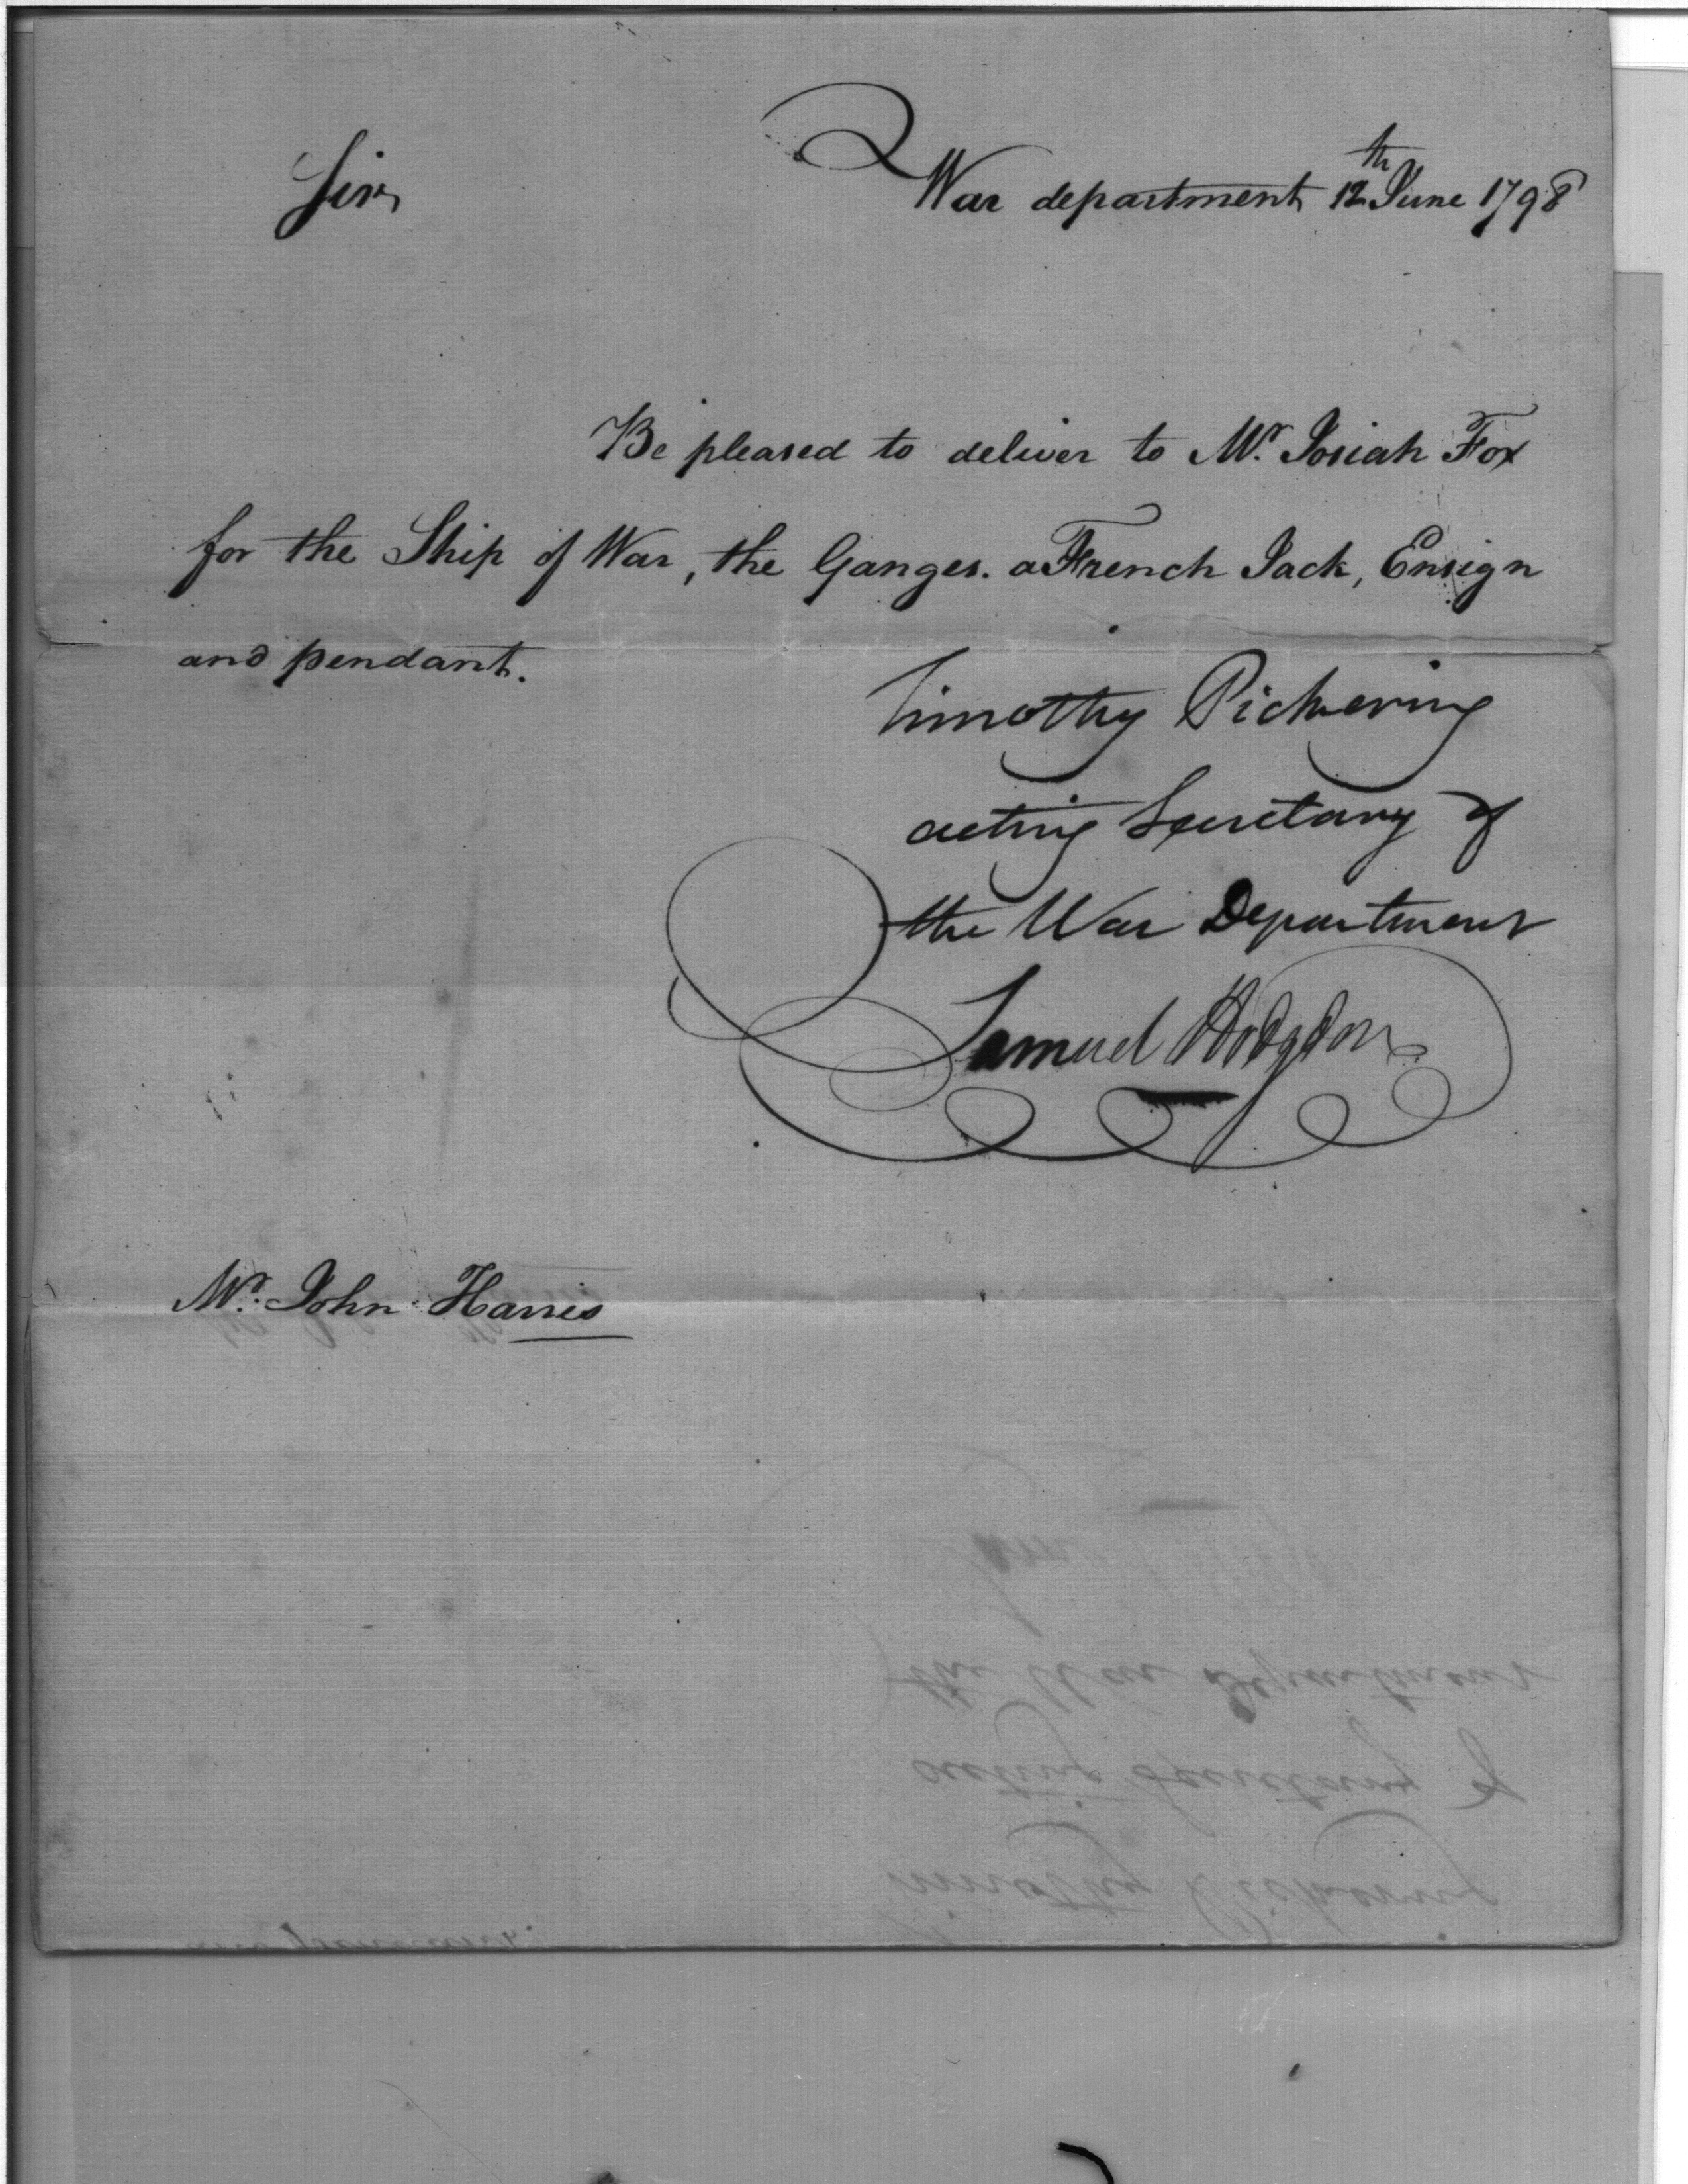 Sir,
War department 12th June 1798
Be pleased to deliver to Mr. Josiah Fox
for the Ship of War, the Ganges. a French Jack, Ensign
and pendant.
Timothy Pickering
acting Secretary of
the War Department
Samuel Hodgdon
Mr. John Harris